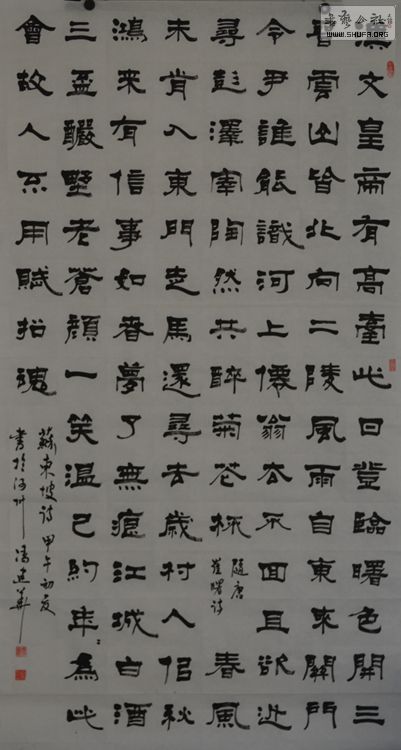 書藝公社
WWW.SHUFA.ORG
漢文皇帝有高臺此日登臨曙色開三
晉雲山皆北向二陵風雨自東來關門
令尹誰能識河上僊翁去不囬且欲近
尋彭澤宰陶然共醉菊花杯
隨唐
崔曙詩
春風
未肯入東門走馬還尋去歲村人佀秋
鴻來有信事如春夢了無痕江城白酒
三盃釅墅老蒼顏一笑溫已約年〻為此
會故人不用賦招魂
蘇東坡詩 甲午初夏
書於河州